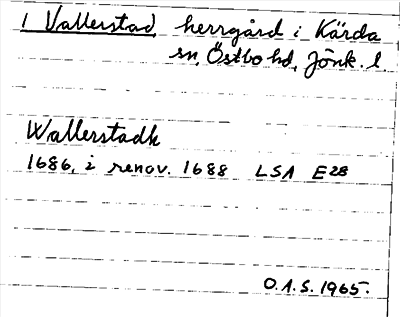 1 Vallerstad, herrgård i Kärda
sn, Östbo hd, Jönk. l.
Wallerstadh
1686, i renov. 1688 LSA E28
O.A.S. 1965.